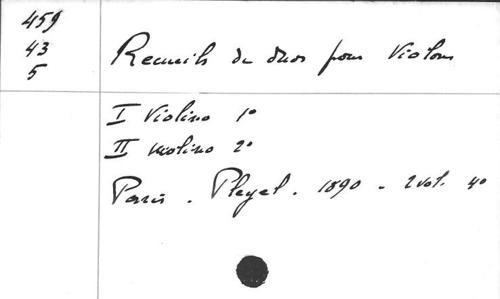 459
43
5
Recueils de duos pour Violons
I Violino 1º
II Violino 2º
Paris. Pleyel. 1890 - 2 vol. 4º